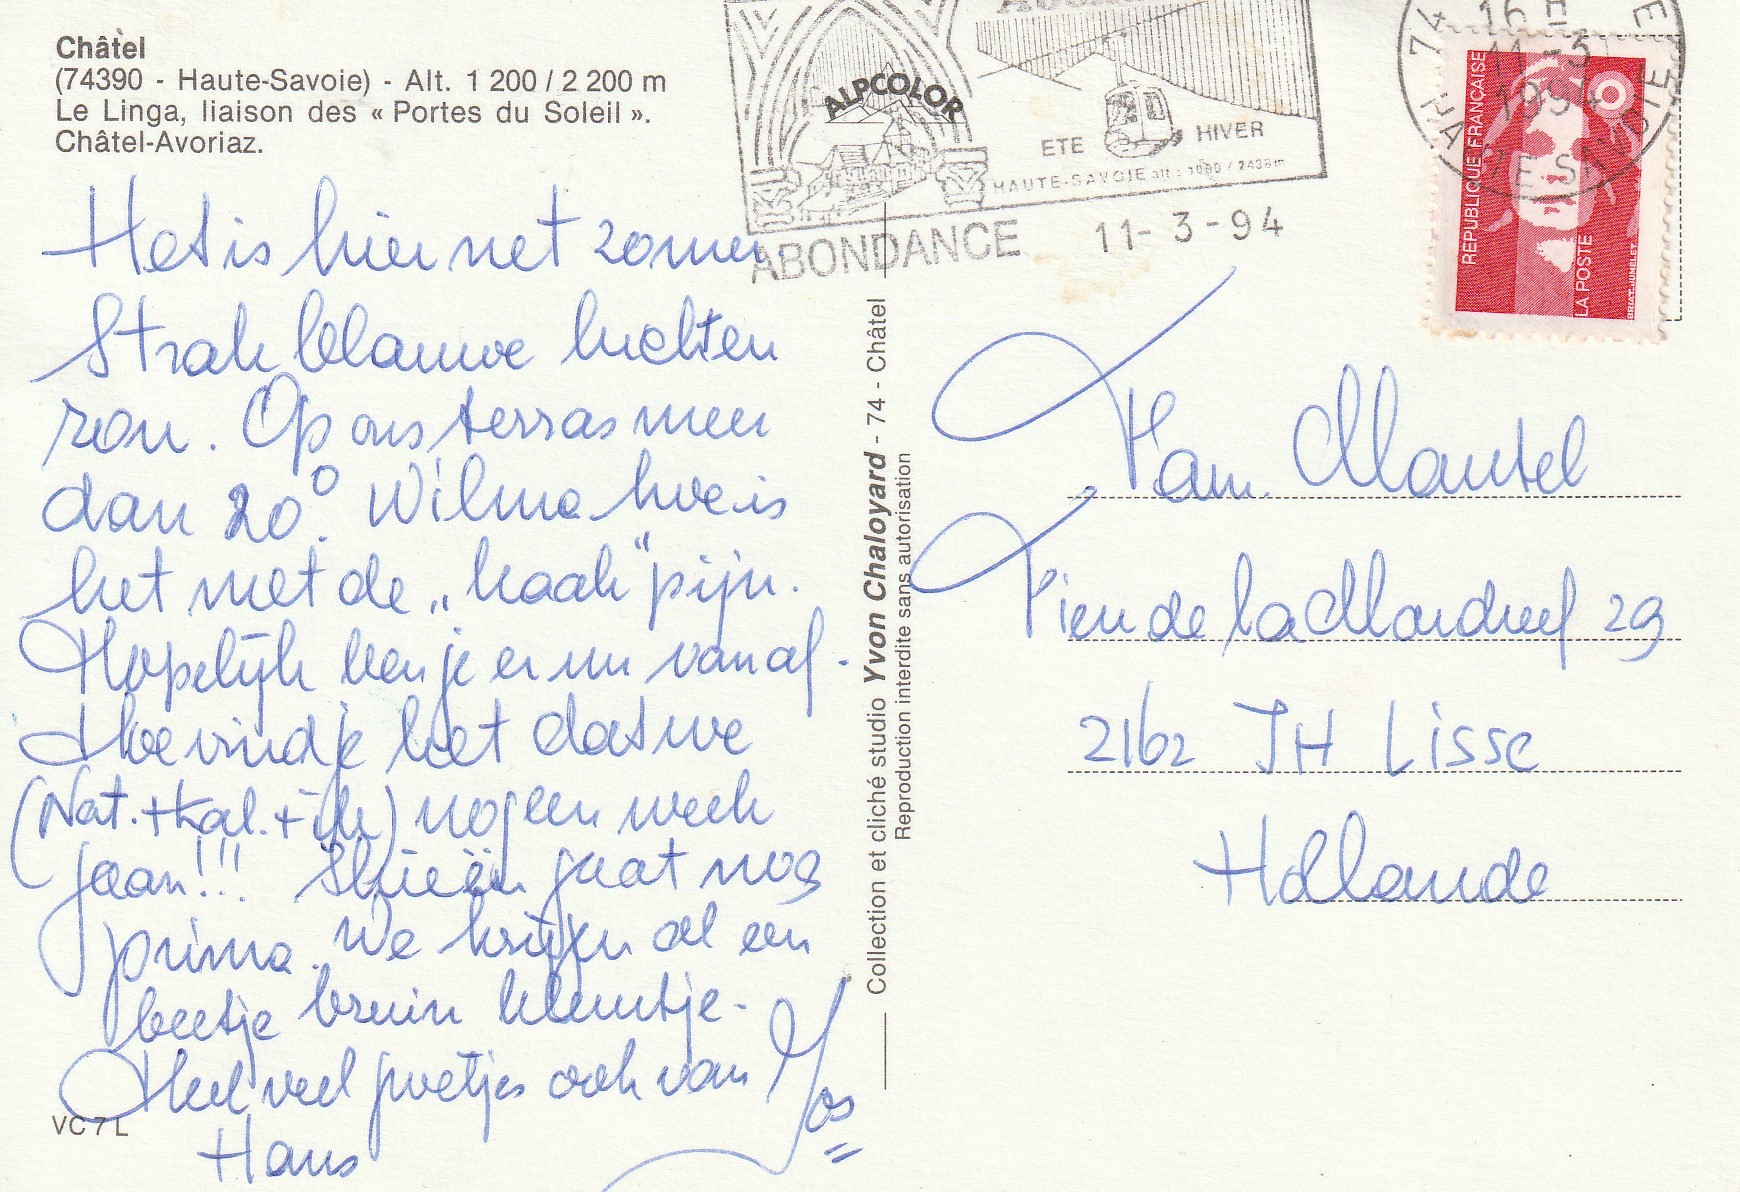 Châtel
(74390 - Haute-Savoie) - Alt. 1 200 / 2 200 m
Le Linga, liaison des « Portes du Soleil ».
Châtel-Avoriaz.
Het is hier net zomer
Strak blauwe luchten
zon. Op ons terras meer
dan 20°. Wilma hoe is
het met de „kaak" pijn.
Hopelijk ben je er nu vanaf.
Hoe vind je het dat we
(Nat. + Kal. + ik) nog een week
gaan!!! Skieën gaat nog
prima. We krijgen al een
beetje bruin kleurtje.
Heel veel groetjes ook van
Hans
Jos
VC 7 L
Collection et cliché studio Yvon Chaloyard - 74 - Châtel
Reproduction interdite sans autorisation
ALPCOLOR
ETE HIVER
HAUTE-SAVOIE alt : 1000 / 2438 m
ABONDANCE 11-3-94
74
16 H
11-3
1994
HAUTE-SAVOIE
REPUBLIQUE FRANÇAISE
LA POSTE
BRIAT-JUMELET
Fam. Mantel
Pieu de la Mardreef 29
2162 JH Lisse
Hollande